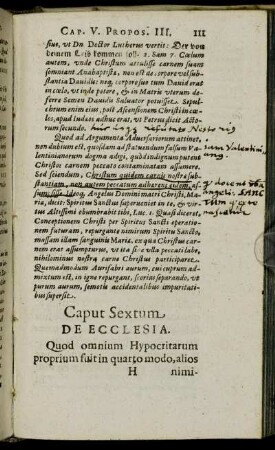 CAP. V. PROPOS. III. 111
sius, ut Dn. Doctor Lutherus vertit: Der von
deinem Leib kommen soll. 2. Sam 7. Caiium
autem, unde Christum attulisse carnem suam
somniant Anabaptistæ, non est de corpore vel sub-
stantia Davidis: neq; corpus ejus tum David erat
in cœlo, ut inde potere, & in Matris uterum de-
ferre Semen Davidis Salvator potuisset. Sepul-
chrum enim ejus, post Ascensionem Christi in cœ-
los, apud Iudæos adhuc erat, ut Petrus dicit Acto-
rum secundo.
Quod ad Argumenta Adversariorum attinet,
non dubium est, quidam ad statuendum falsum Va-
lentinianorum dogma adigi, quòd indignum putent
Christum carnem peccato contaminatam assumere.
Sed sciendum, Christum quidem carnis nostræ sub-
stantiam, non autem peccatum adhærens eidem, as-
sumsisse. Ideoq; Angelus Domini matri Christi, Ma-
riæ, dicit: Spiritus Sanctus superveniet in te, & vir-
tus Altissimi obumbrabit tibi, Luc. 1. Quasi diceret,
Conceptionem Christi per Spiritus Sancti operatio-
nem futuram, repurgante nimirum Spiritu Sancto,
massam illam sanguinis Mariæ, ex qua Christus car-
nem erat assumpturus, ut ita si e ulla peccati labe,
nihilominus nostræ carnis Christus participaret.
Quemadmodum Aurifaber aurum, cui cuprum ad-
mixtum est, in igne repurgare, scoriæ separando, ut
purum aurum, semotis accidentalibus impuritati-
bus supersit.
Caput Sextum
DE ECCLESIA.
Quod omnium Hypocritarum
proprium fuit in quarto modo, alios
H nimi-